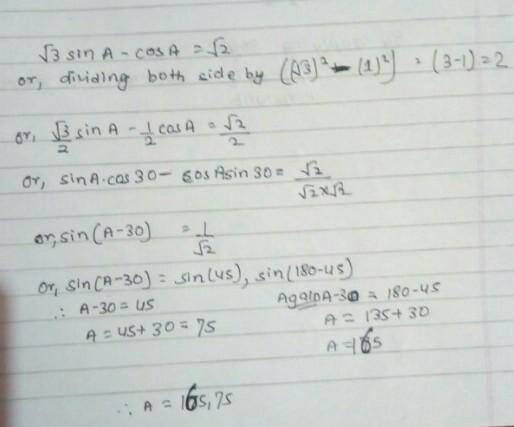 √3 sin A - cos A = √2
or, dividing both side by ((√3)² - (1)²) = (3-1) = 2
or, √3/2 sin A - 1/2 cos A = √2/2
Or, sin A·cos 30 - cos A sin 30 = √2/√2×√2
or, sin(A-30) = 1/√2
Or, sin(A-30) = sin(45), sin(180-45)
∴ A-30 = 45 Again A-30 = 180-45
A = 45+30 = 75 A = 135+30
A = 165
∴ A = 165, 75